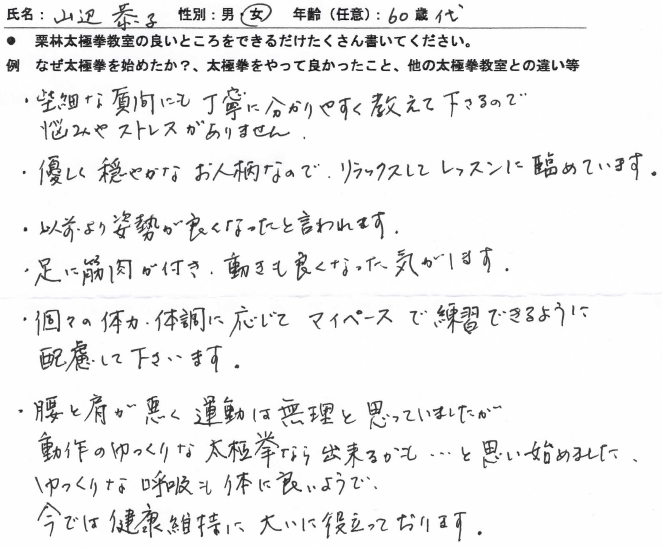 氏名：山辺 恭子 性別：男・女 年齢（任意）：60歳代
● 栗林太極拳教室の良いところをできるだけたくさん書いてください。
例 なぜ太極拳を始めたか？、太極拳をやって良かったこと、他の太極拳教室との違い等
・些細な質問にも丁寧に分かりやすく教えて下さるので
悩みやストレスがありません.
・優しく穏やかなお人柄なので、リラックスしてレッスンに臨めています。
・以前より姿勢が良くなったと言われます.
・足に筋肉が付き、動きも良くなった気がします.
・個々の体力・体調に応じてマイペースで練習できるように
配慮して下さいます。
・腰と肩が悪く運動は無理と思っていましたが
動作のゆっくりな太極拳なら出来るかも…と思い始めました、
ゆっくりな呼吸も体に良いようで、
今では健康維持に大いに役立っております。